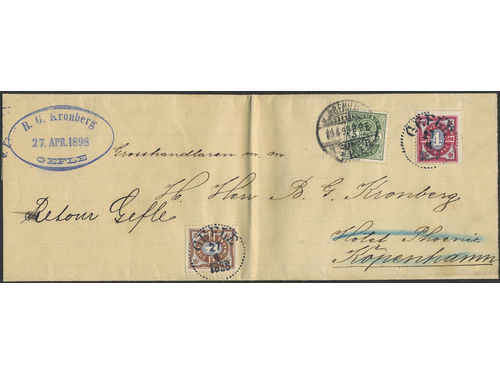 B. G. Kronberg
27. APR. 1898
GEFLE
Grosshandlaren m. m.
H. Herr B. G. Kronberg
Retour Gefle
Hotel Phoenix
Kopenhamn
GEFLE
4
GEFLE
2
1898